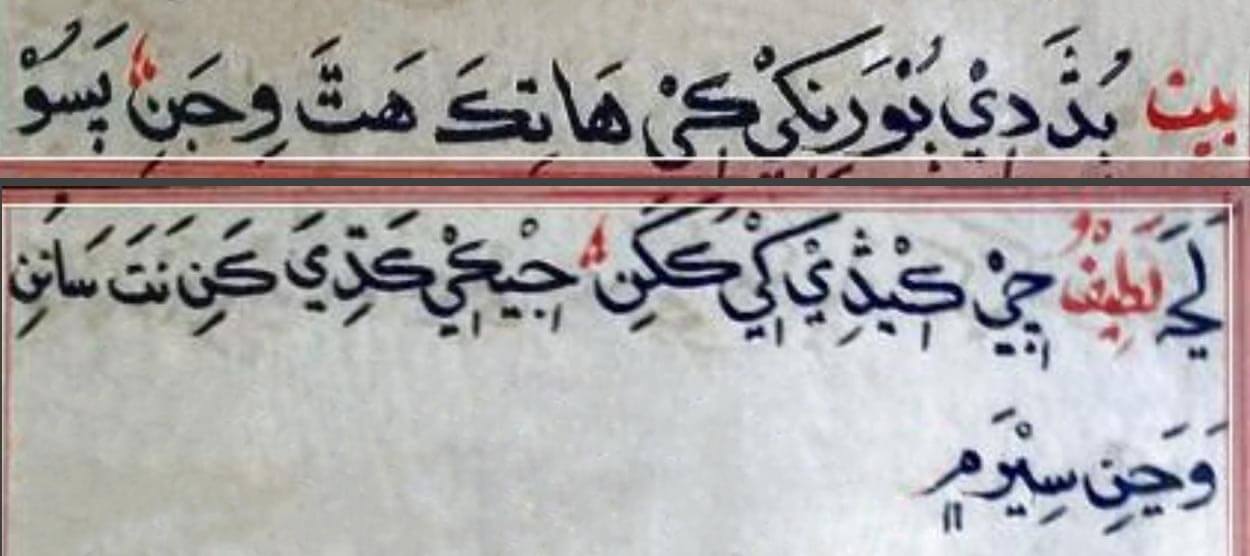 بيت بُڏَّ دِيْ بُوْرَنکيْ کيْ هَاتِکَ هَتَّ وِجَنِ پَسوُ
لَجَ لَطِيْفُ چيْ کيْڏِيْ کيْ ککَنِ جيْکيْ کَڏِيَ کَنِ نَتَ سَانِنِ
وَڃَنِ سِيْرَمِ